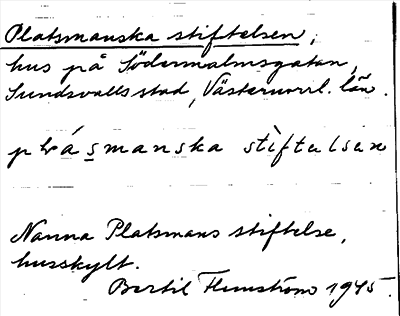 Platsmanska stiftelsen,
hus på Södermalmsgatan,
Sundsvalls stad, Västernorrl. län.
plásmanska stìftɑlsɑn
Nanna Platsmans stiftelse,
husskylt.
Bertil Flemström 1945.